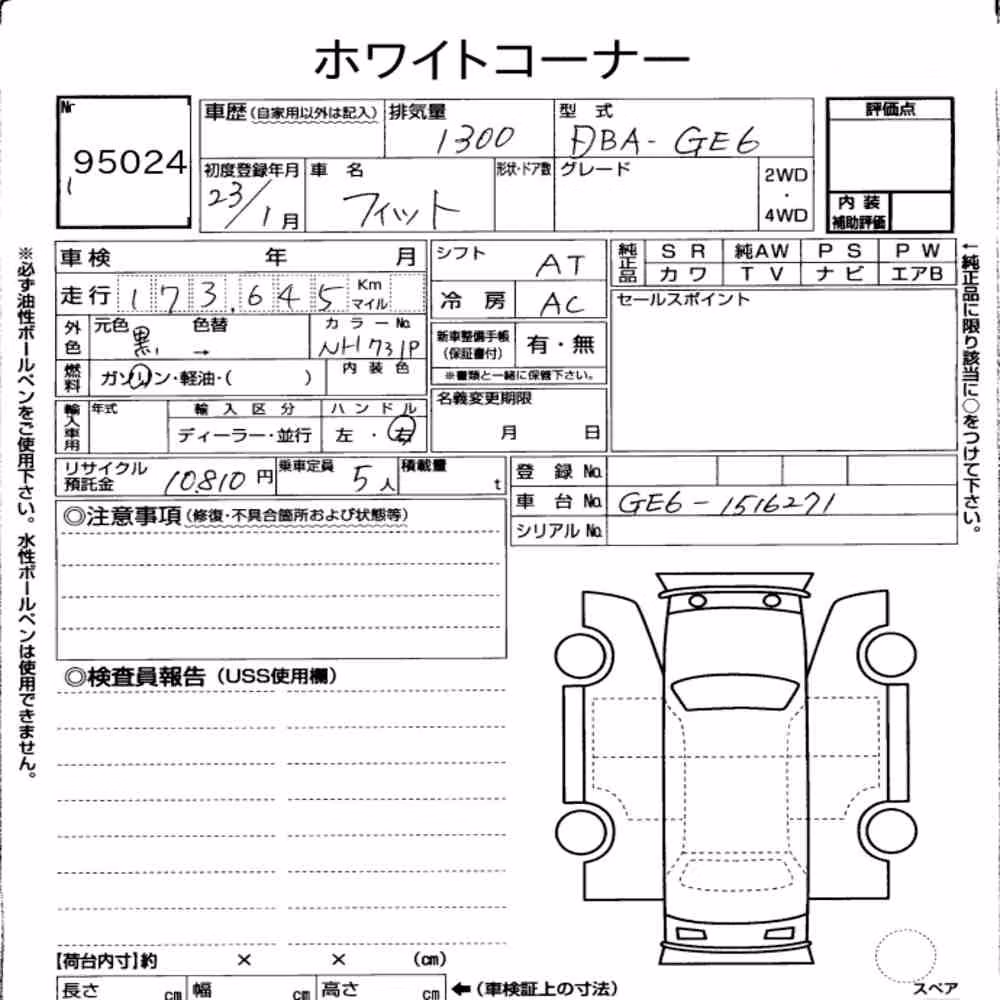 ホワイトコーナー
Nr
95024
車歴(自家用以外は記入) 排気量 1300 型式 DBA-GE6
初度登録年月 23/1月 車名 フィット 形状・ドア数 グレード 2WD・4WD
評価点
内装補助評価
車検 年 月
走行 173,645 Km マイル
外色 元色 黒 色替 → カラーNo. NH731P
燃料 ガソリン・軽油・( ) 内装色
輸入車用 年式 輸入区分 ディーラー・並行 ハンドル 左・右
シフト AT
冷房 AC
新車整備手帳(保証書付) 有・無
※書類と一緒に保管下さい。
名義変更期限
月 日
純正品 SR 純AW PS PW
カワ TV ナビ エアB
セールスポイント
リサイクル預託金 10810円 乗車定員 5人 積載量 t
登録No.
車台No. GE6-1516271
シリアルNo.
◎注意事項(修復・不具合箇所および状態等)
◎検査員報告(USS使用欄)
【荷台内寸】約 × × (cm)
長さ cm 幅 cm 高さ cm ←(車検証上の寸法)
スペア
※必ず油性ボールペンをご使用下さい。水性ボールペンは使用できません。
←純正品に限り該当に○をつけて下さい。